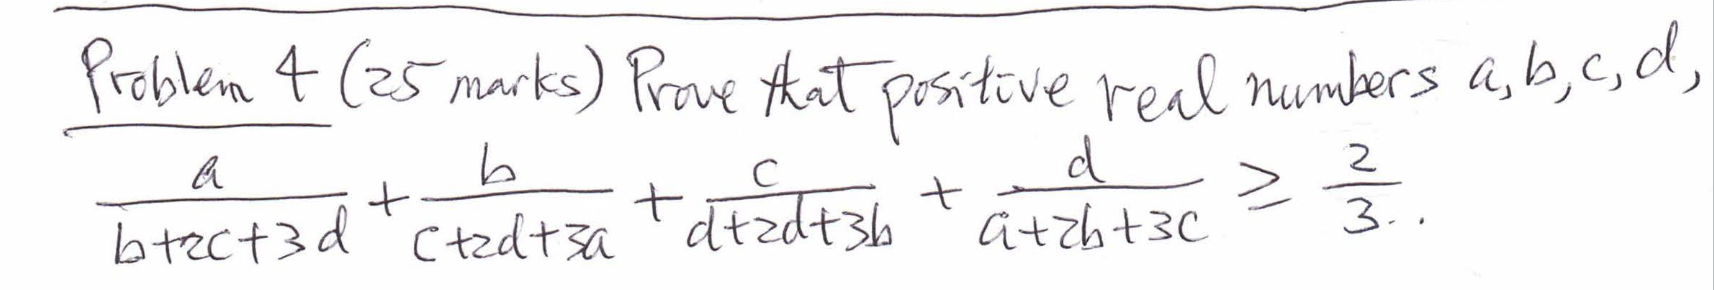 Problem 4 (25 marks) Prove that positive real numbers a, b, c, d,
a/(b+2c+3d) + b/(c+2d+3a) + c/(d+2d+3b) + d/(a+2b+3c) ≥ 2/3..